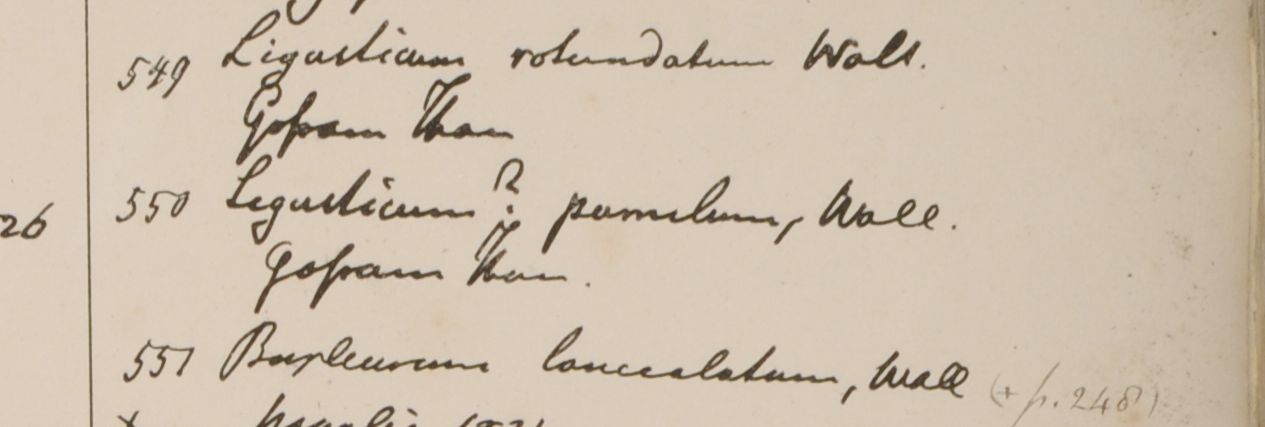 549 Ligusticum rotundatum Wall.
Gosam Than
26 550 Ligusticum? pumilum, Wall.
Gosam Than.
551 Bupleurum lanceolatum, Wall (+ p. 248)